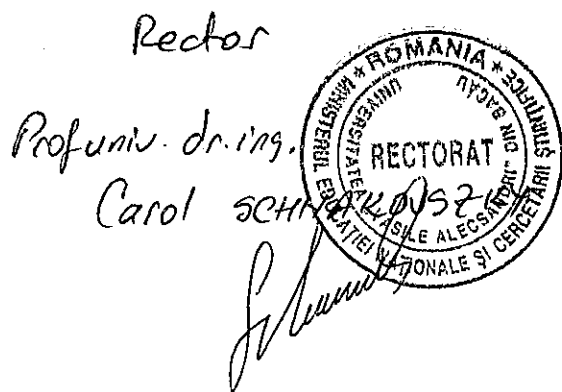 Rector
Prof univ. dr. ing.
Carol
* ROMANIA *
MINISTERUL EDUCAȚIEI NAȚIONALE ȘI CERCETĂRII ȘTIINȚIFICE
UNIVERSITATEA "VASILE ALECSANDRI" DIN BACĂU
RECTORAT